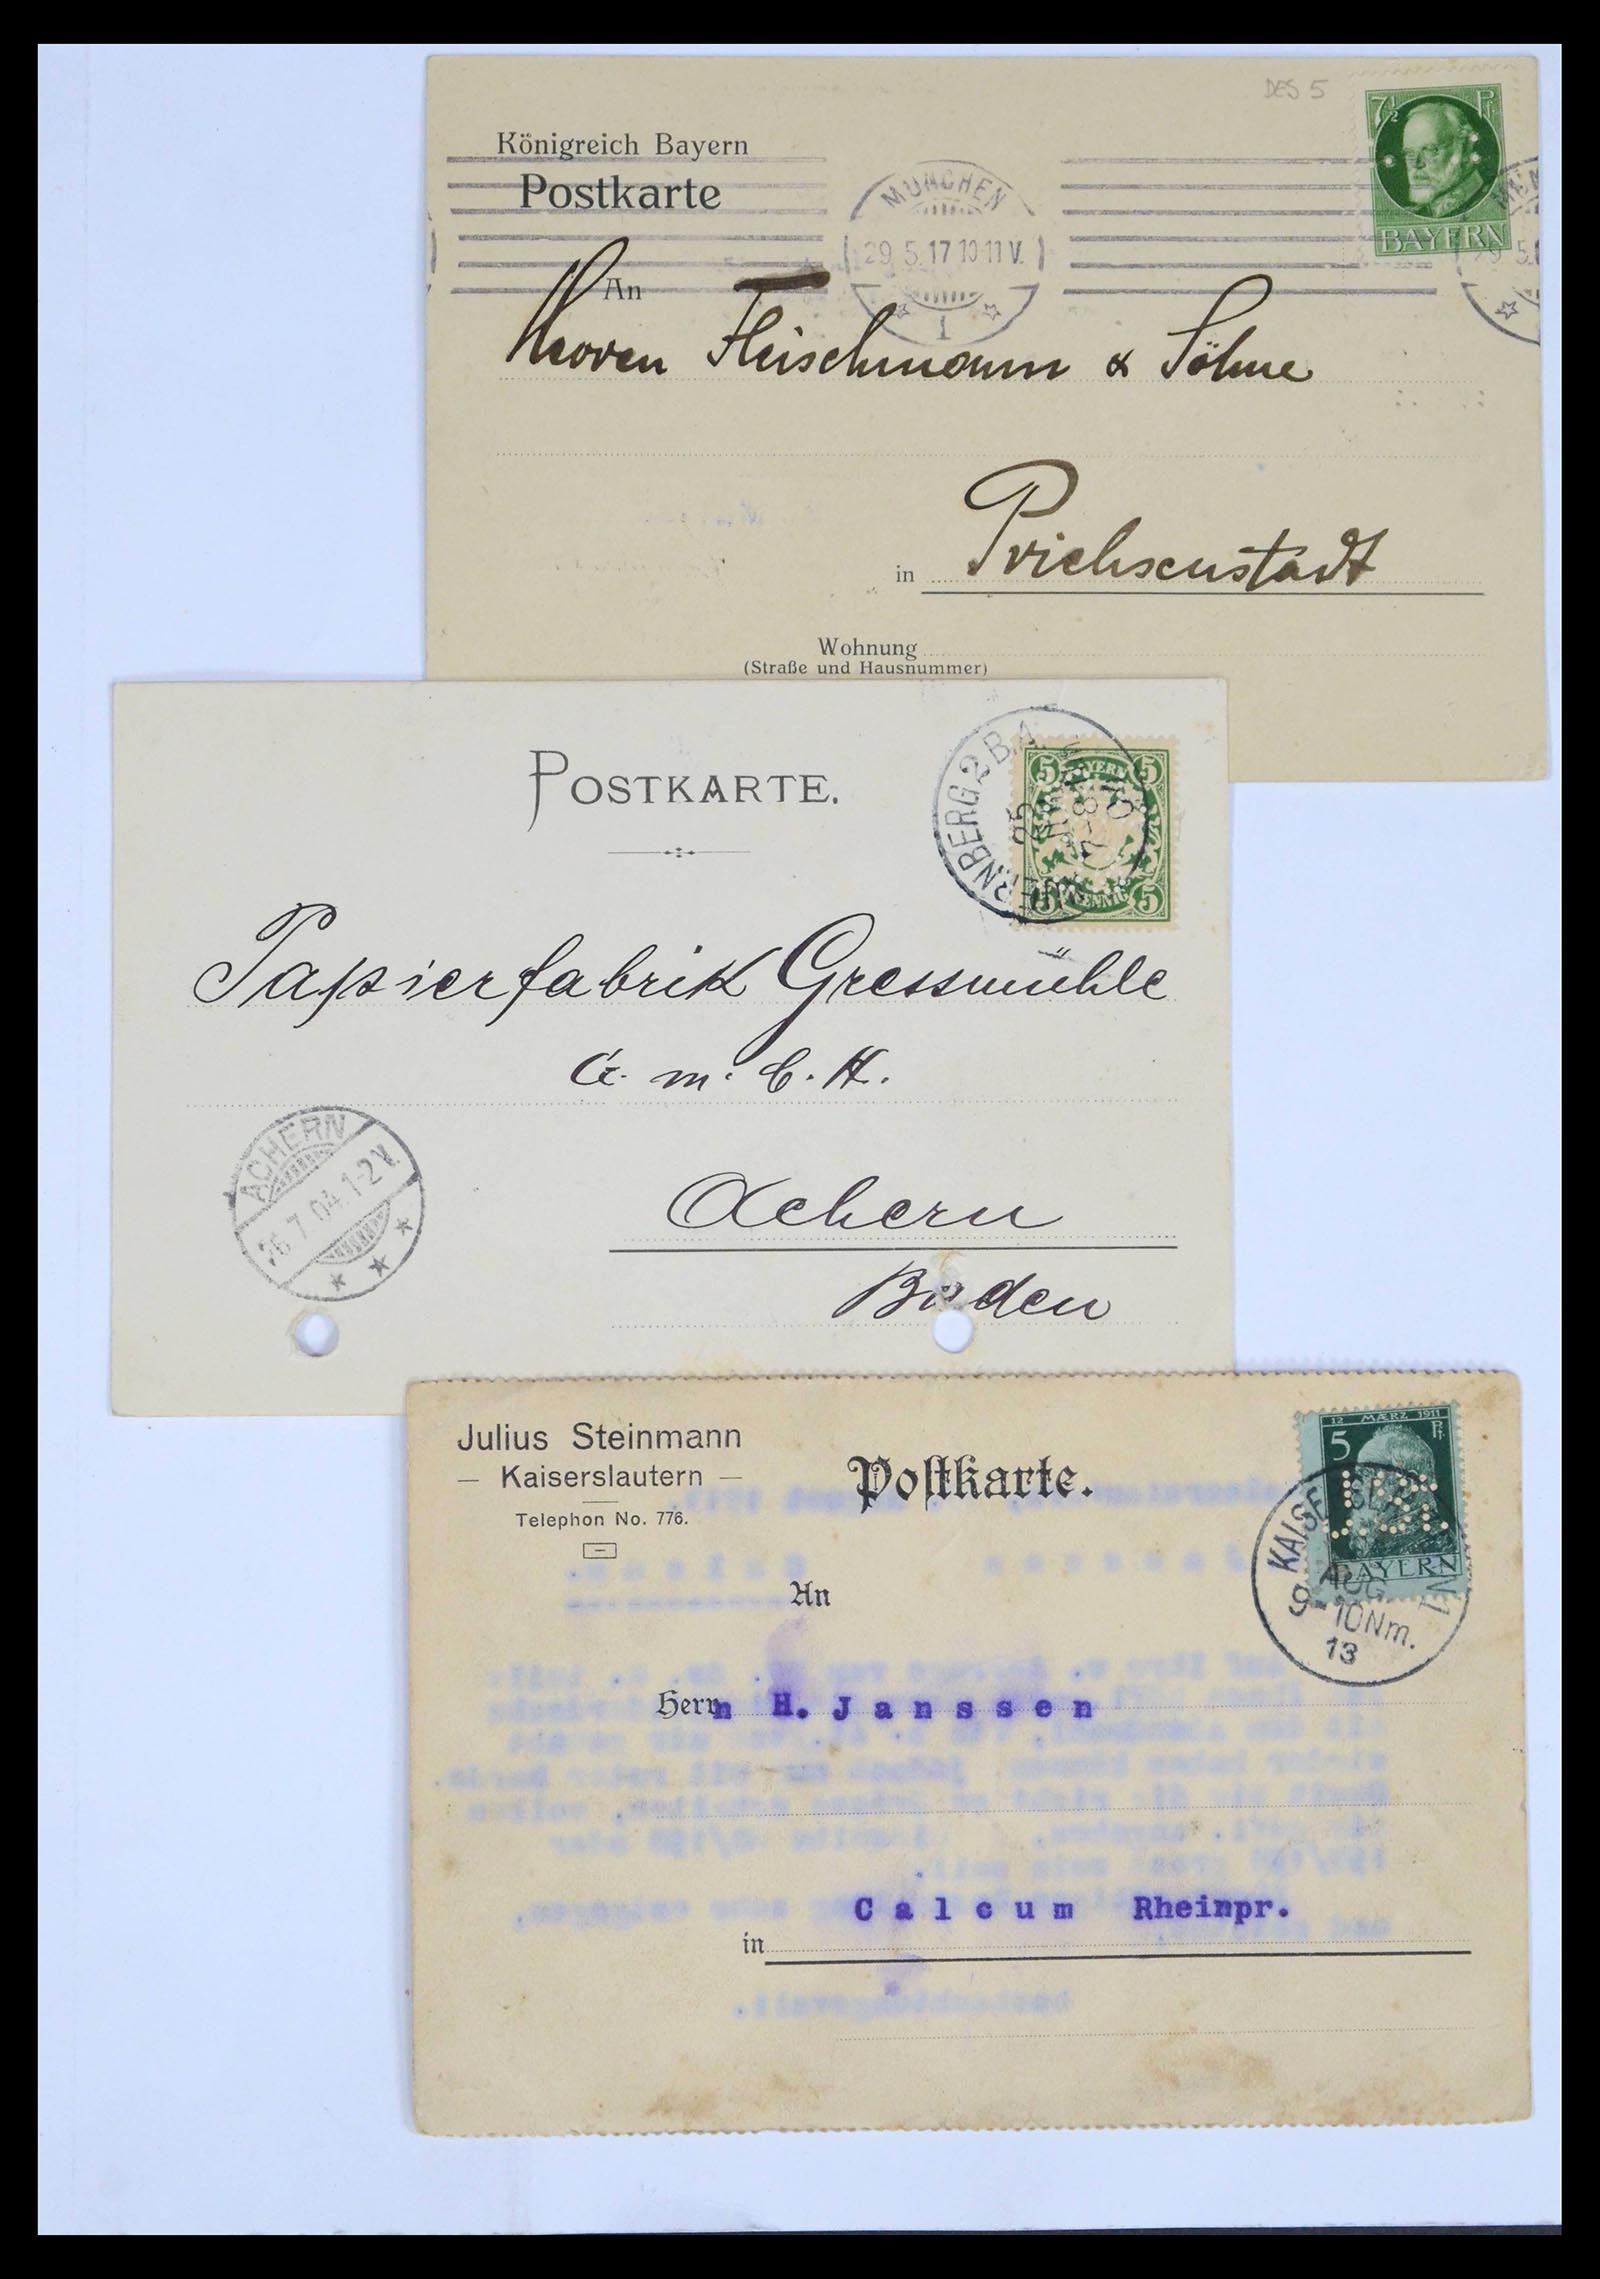 DES 5
Königreich Bayern
Postkarte
7½ Pf.
BAYERN
MÜNCHEN
29.5.17 10-11 V.
1
An
Herren Fleischmann & Söhne
in Prichsenstadt
Wohnung
(Straße und Hausnummer)
POSTKARTE.
NUERNBERG 2 B.A.
25
7-8
5 BAYERN 5
5 PFENNIG 5
Papierfabrik Gressmühle
G. m. b. H.
ACHERN
26.7.04.1-2V.
Achern
Baden
Julius Steinmann
— Kaiserslautern —
Telephon No. 776.
Postkarte.
12 MÆRZ 1911
5 Pf.
J.St.
BAYERN
AUG.
9-10Nm.
13
An
Herrn H. Janssen
Calcum Rheinpr.
in